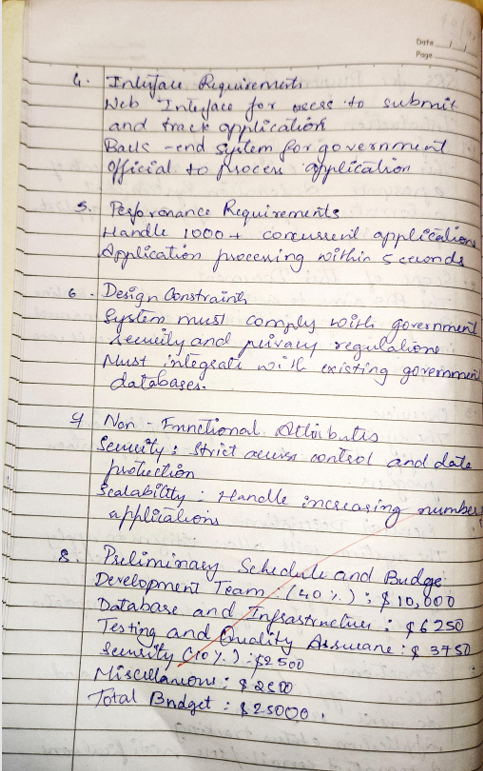 Date / /
Page
4. Interface Requirements
Web Interface for users to submit
and track application
Back-end system for government
Official to process application
5. Performance Requirements
Handle 1000+ concurrent applications
Application processing within 5 seconds
6. Design Constraints
System must comply with government
security and privacy regulations
Must integrate with existing government
databases.
7 Non-Functional Attributes
Security: Strict access control and data
protection
Scalability: Handle increasing number
applications
8. Preliminary Schedule and Budge
Development Team (40%): $10,000
Database and Infrastructure: $6250
Testing and Quality Assurane: $3750
Security (10%): $2500
Miscellaneous: $2500
Total Budget: $25000.